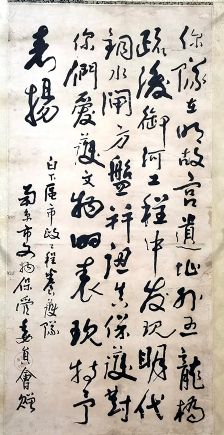 你隊在明故宫遺址外五龍橋
疏浚御河工程中发现明代
銅水閘方盤并認真保護對
你們愛護文物的表现特予
表揚
白下區市政工程养護隊
南京市文物保管委員會贈